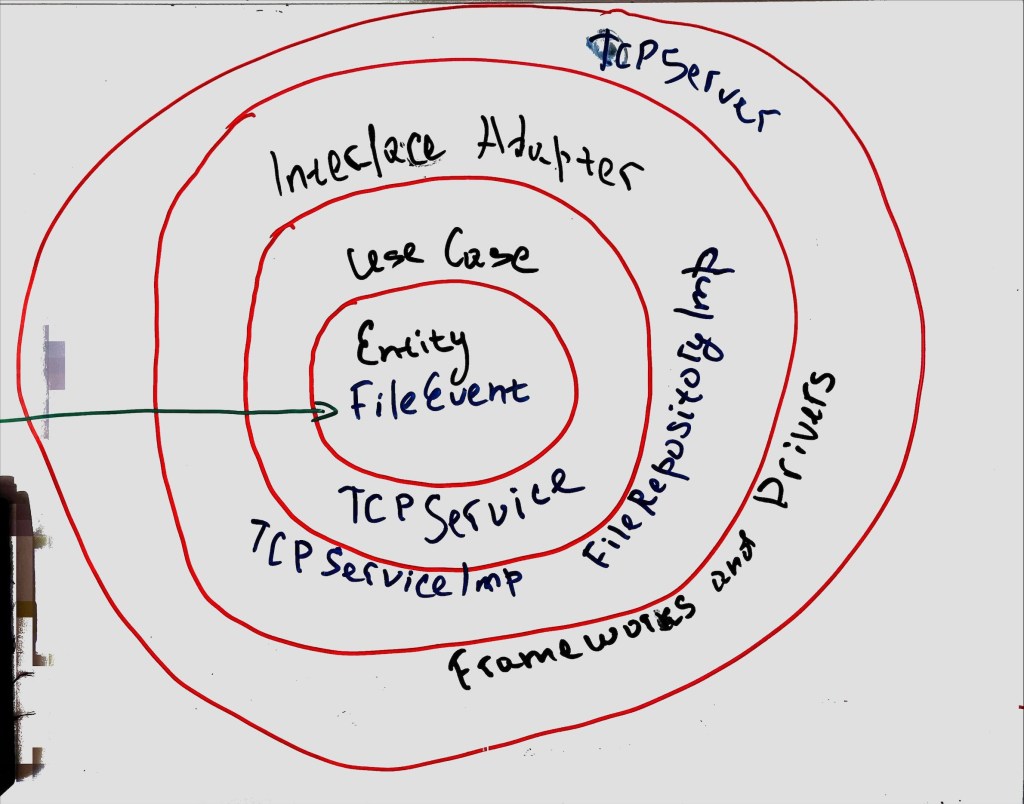 TCPServer
Interface Adapter
Use Case
Entity
FileEvent
TCPService
TCPServiceImp
FileRepositoryImp
Frameworks and Drivers